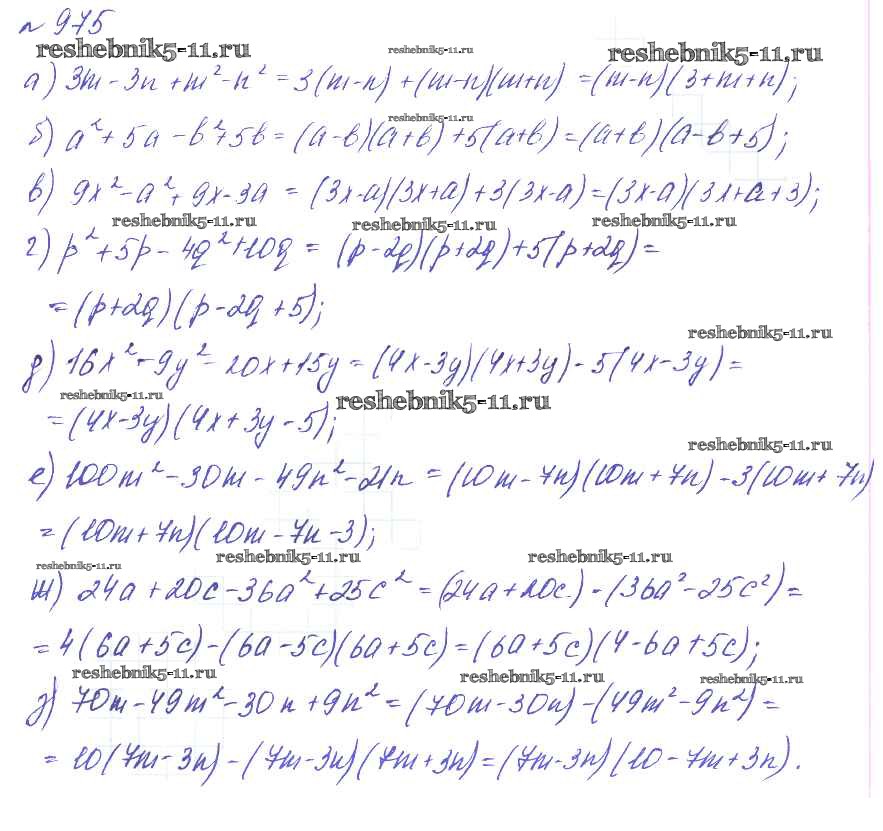 № 975
reshebnik5-11.ru reshebnik5-11.ru reshebnik5-11.ru
а) 3m - 3n + m² - n² = 3(m-n) + (m-n)(m+n) = (m-n)(3+m+n);
reshebnik5-11.ru
б) a² + 5a - b² + 5b = (a-b)(a+b) + 5(a+b) = (a+b)(a-b+5);
в) 9x² - a² + 9x - 3a = (3x-a)(3x+a) + 3(3x-a) = (3x-a)(3x+a+3);
reshebnik5-11.ru reshebnik5-11.ru reshebnik5-11.ru
г) p² + 5p - 4q² + 10q = (p-2q)(p+2q) + 5(p+2q) =
= (p+2q)(p-2q+5);
reshebnik5-11.ru
д) 16x² - 9y² - 20x + 15y = (4x-3y)(4x+3y) - 5(4x-3y) =
reshebnik5-11.ru reshebnik5-11.ru
= (4x-3y)(4x+3y-5);
reshebnik5-11.ru
е) 100m² - 30m - 49n² - 21n = (10m-7n)(10m+7n) - 3(10m+7n)
= (10m+7n)(10m-7n-3);
reshebnik5-11.ru reshebnik5-11.ru reshebnik5-11.ru
ж) 24a + 20c - 36a² + 25c² = (24a+20c) - (36a² - 25c²) =
= 4(6a+5c) - (6a-5c)(6a+5c) = (6a+5c)(4-6a+5c);
reshebnik5-11.ru reshebnik5-11.ru reshebnik5-11.ru
з) 70m - 49m² - 30n + 9n² = (70m-30n) - (49m² - 9n²) =
= 10(7m-3n) - (7m-3n)(7m+3n) = (7m-3n)(10-7m+3n).